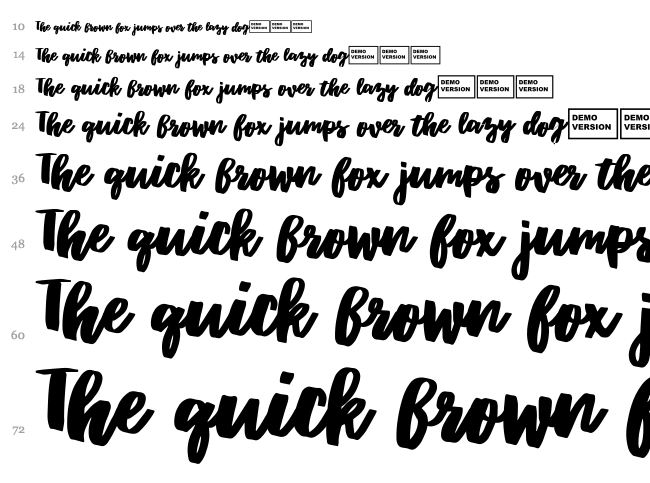 10 The quick brown fox jumps over the lazy dog DEMO VERSION DEMO VERSION DEMO VERSION
14 The quick brown fox jumps over the lazy dog DEMO VERSION DEMO VERSION DEMO VERSION
18 The quick brown fox jumps over the lazy dog DEMO VERSION DEMO VERSION DEMO VERSION
24 The quick brown fox jumps over the lazy dog DEMO VERSION DEMO VERSI
36 The quick brown fox jumps over the
48 The quick brown fox jumps
60 The quick brown fox j
72 The quick brown f